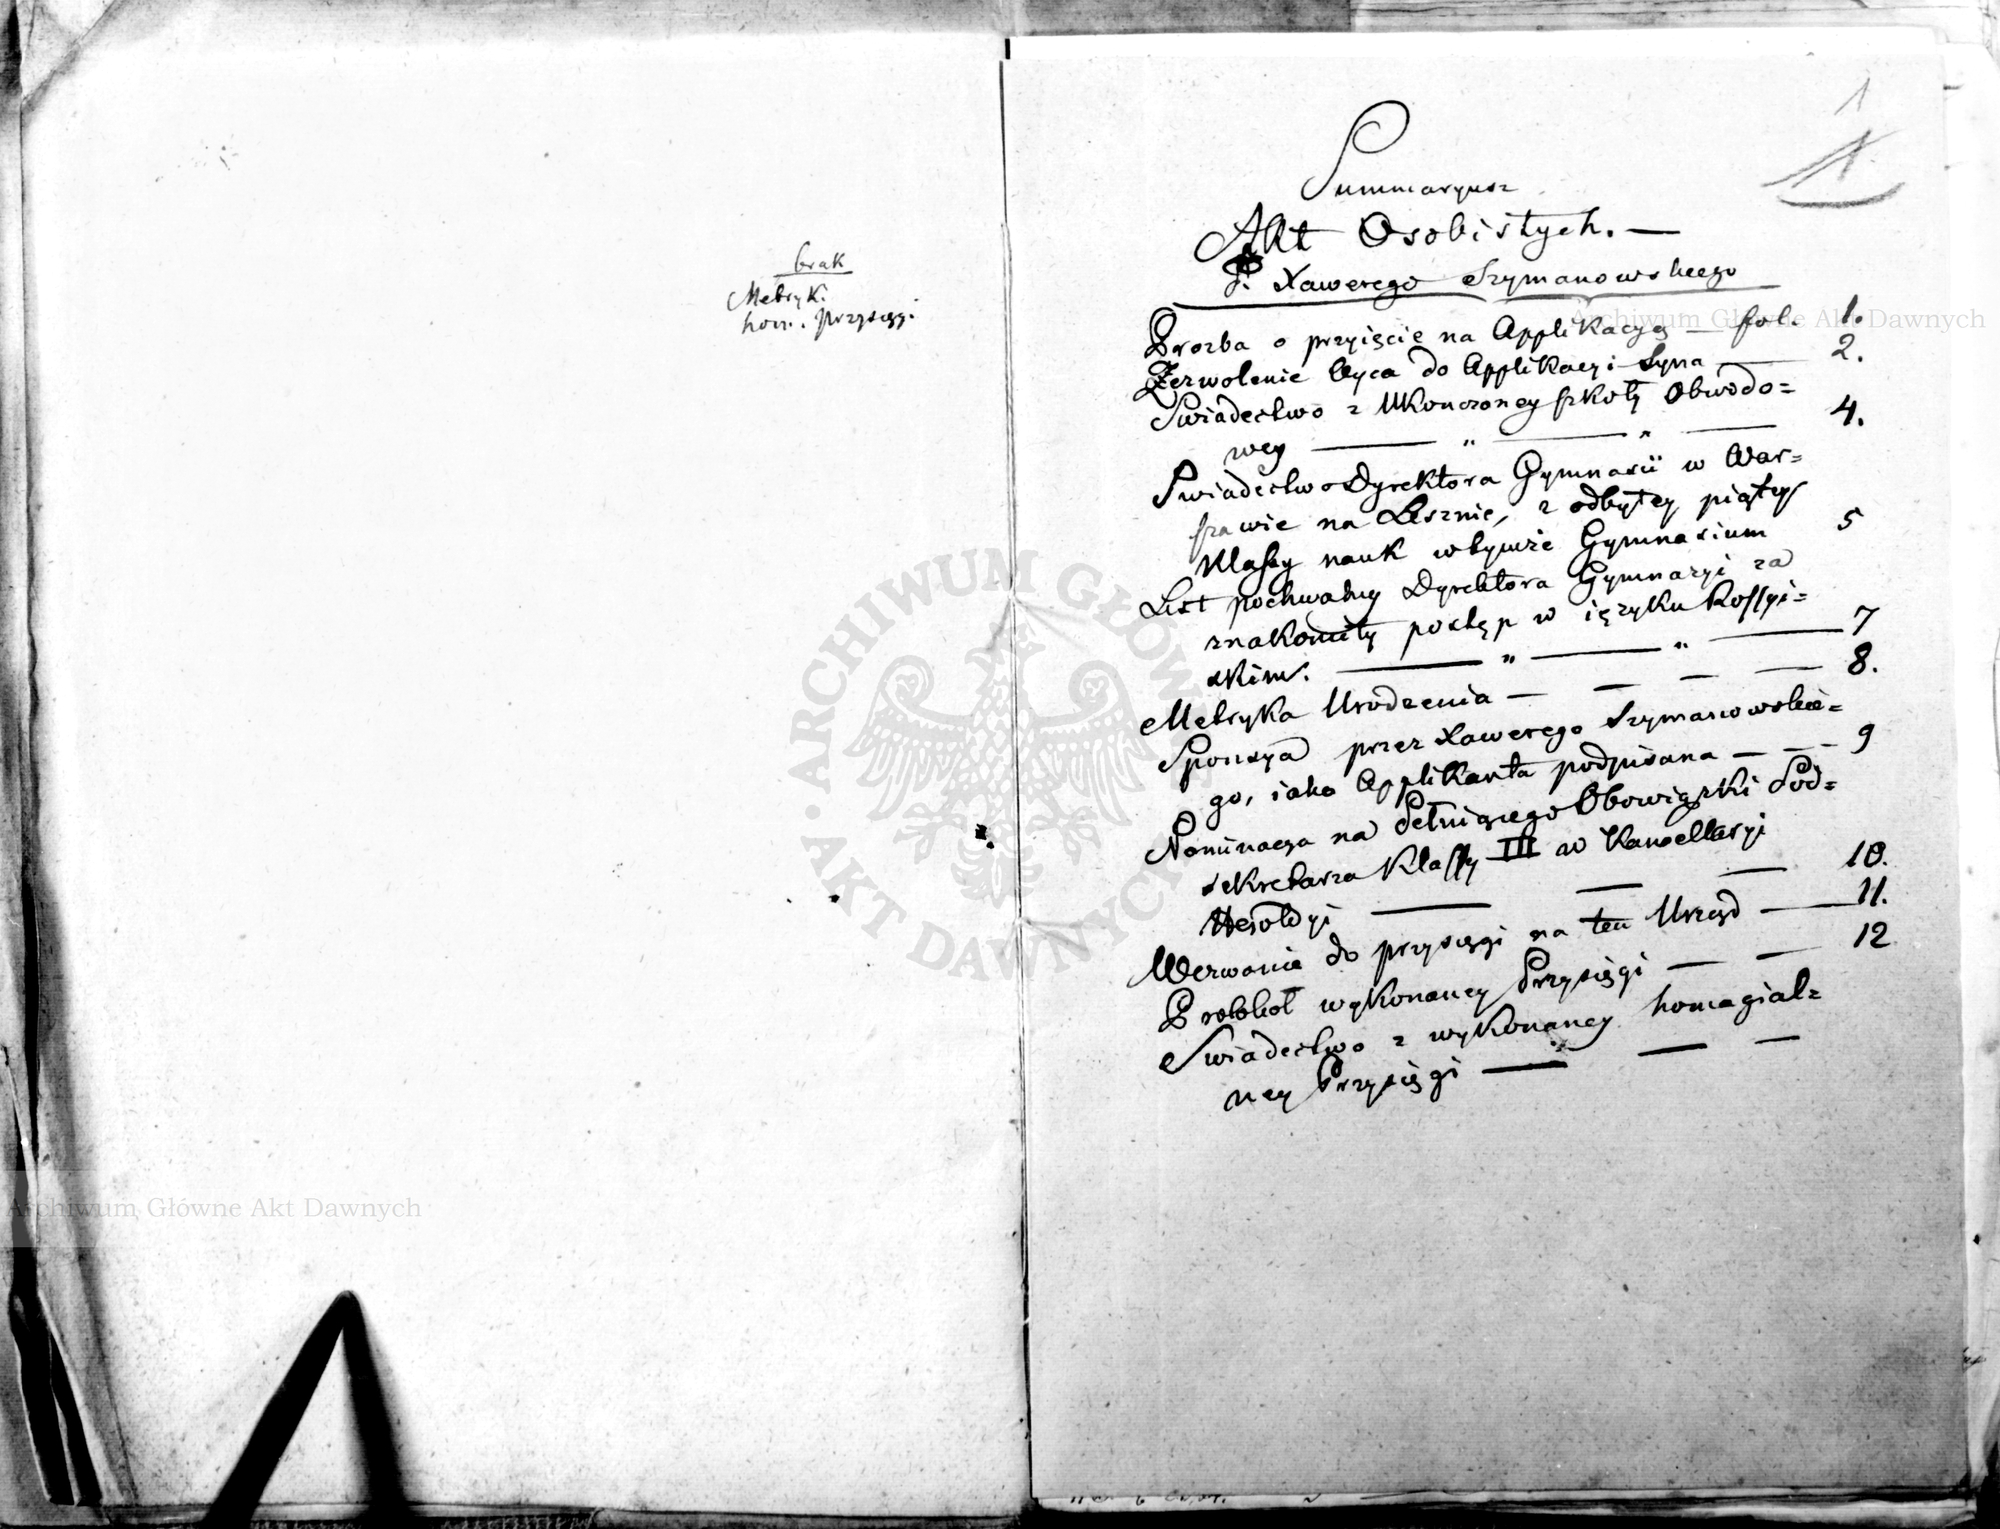 brak
Metryk.
hom. przysięgi
1
1
Summaryusz
Akt Osobistych. —
P. Xawerego Szymanowskiego
Prozba o przyięcie na Applikacyą — fol. 1.
Zezwolenie Oyca do Applikacyi Syna — 2.
Swiadectwo z Ukonczoney szkoły Obwodo=
wey — " — " — 4.
Swiadectwo Dyrektora Gymnasii w War=
szawie na Lesznie, z odbytey piątey
Klassy nauk w tymże Gymnasium 5
List pochwalny Dyrektora Gymnazyi za
znakomity postęp w ięzyku Rossyi=
skim. — " — " — 7
Metryka Urodzenia — — — — 8.
Sponsya przez Xawerego Szymanowskie=
go, iako Applikanta podpisana — — - 9
Nominacya na Pełniącego Obowiązki Pod=
sekretarza Klassy III w Kancellaryi
Heroldyi — — — 10.
Wezwanie do przysięgi na ten Urząd — 11.
Protokół wykonaney Przysięgi — — 12
Swiadectwo z wykonaney homagial=
ney Przysięgi — — —
ARCHIWUM GŁÓWNE AKT DAWNYCH
Archiwum Główne Akt Dawnych
Archiwum Główne Akt Dawnych